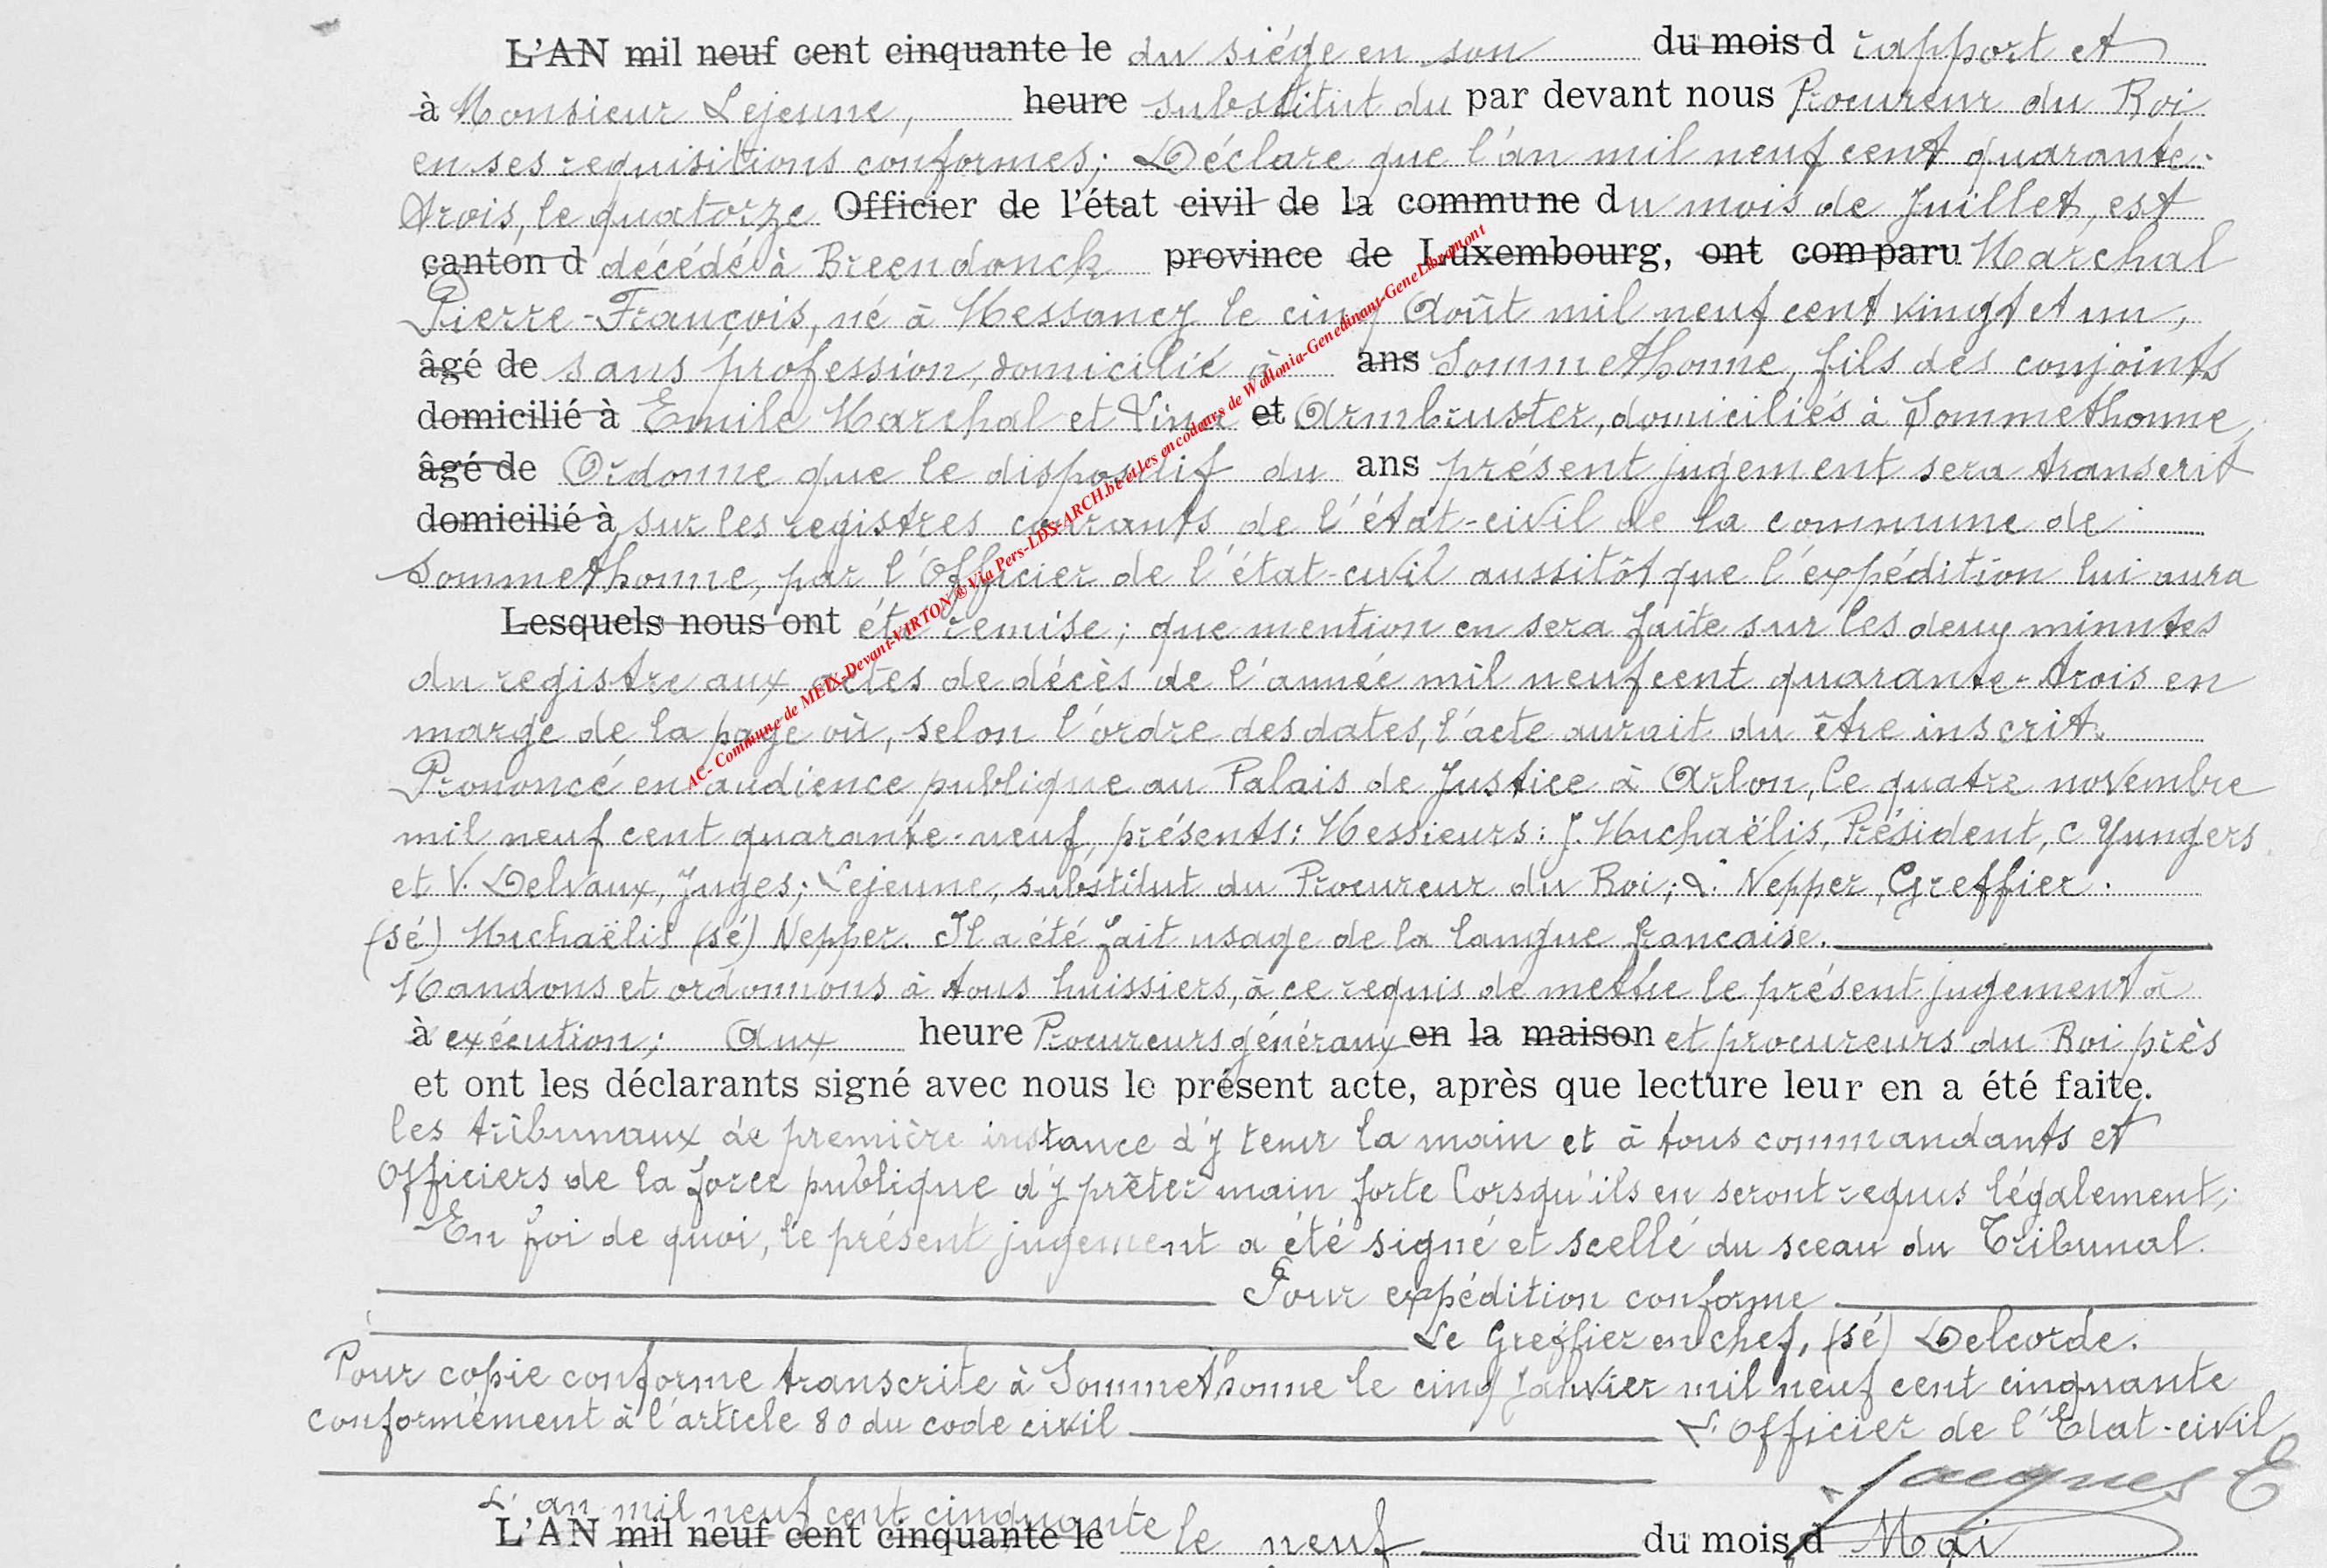 L'AN mil neuf cent cinquante le du siége en son du mois d rapport et
à Monsieur Lejeune, heure substitut du par devant nous Procureur du Roi
en ses requisitions conformes; Déclare que l'an mil neuf cent quarante-
trois, le quatorze Officier de l'état civil de la commune du mois de Juillet, est
canton d décédé à Breendonck province de Luxembourg, ont comparu Marchal
Pierre-François, né à Messancy le cinq Août mil neuf cent vingt et un,
âgé de sans profession, domicilié à ans Sommethonne, fils des conjoints
domicilié à Emile Marchal et et Armbruster, domiciliés à Sommethonne,
âgé de Ordonne que le dispositif du ans présent jugement sera transcrit
domicilié à sur les registres courants de l'état-civil de la commune de
Sommethonne, par l'Officier de l'état-civil aussitôt que l'expédition lui aura
Lesquels nous ont été remise; que mention en sera faite sur les deux minutes
du registre aux actes de décès de l'année mil neuf cent quarante-trois en
marge de la page où, selon l'ordre des dates, l'acte aurait du être inscrit.
Prononcé en audience publique au Palais de Justice à Arlon, le quatre novembre
mil neuf cent quarante-neuf, présents: Messieurs: J. Michaëlis, Président, C Yungers
et V. Delvaux, Juges; Lejeune, substitut du Procureur du Roi; L. Nepper, Greffier.
(sé) Michaëlis (sé) Nepper. Il a été fait usage de la langue francaise.
Mandons et ordonnons à tous huissiers, à ce requis de mettre le présent jugement à
à exécution; Aux heure Procureurs généraux en la maison et procureurs du Roi près
et ont les déclarants signé avec nous le présent acte, après que lecture leur en a été faite.
les tribunaux de première instance d'y tenir la main et à tous commandants et
Officiers de la force publique d'y prêter main forte lorsqu'ils en seront requis légalement;
En foi de quoi, le présent jugement a été signé et scellé du sceau du Tribunal.
Pour expédition conforme
Le Greffier en chef, (sé) Delcorde.
Pour copie conforme transcrite à Sommethonne le cinq Janvier mil neuf cent cinquante
conformément à l'article 80 du code civil L'Officier de l'Etat-civil
Jacques E
L'an mil neuf cent cinquante
L'AN mil neuf cent cinquante le le neuf du mois d Mai
AC- Commune de MEIX-Devant-VIRTON ® Via Pers-LDS-ARCH.be et les encodeurs de Wallonia-Genedinant-GeneLibramont